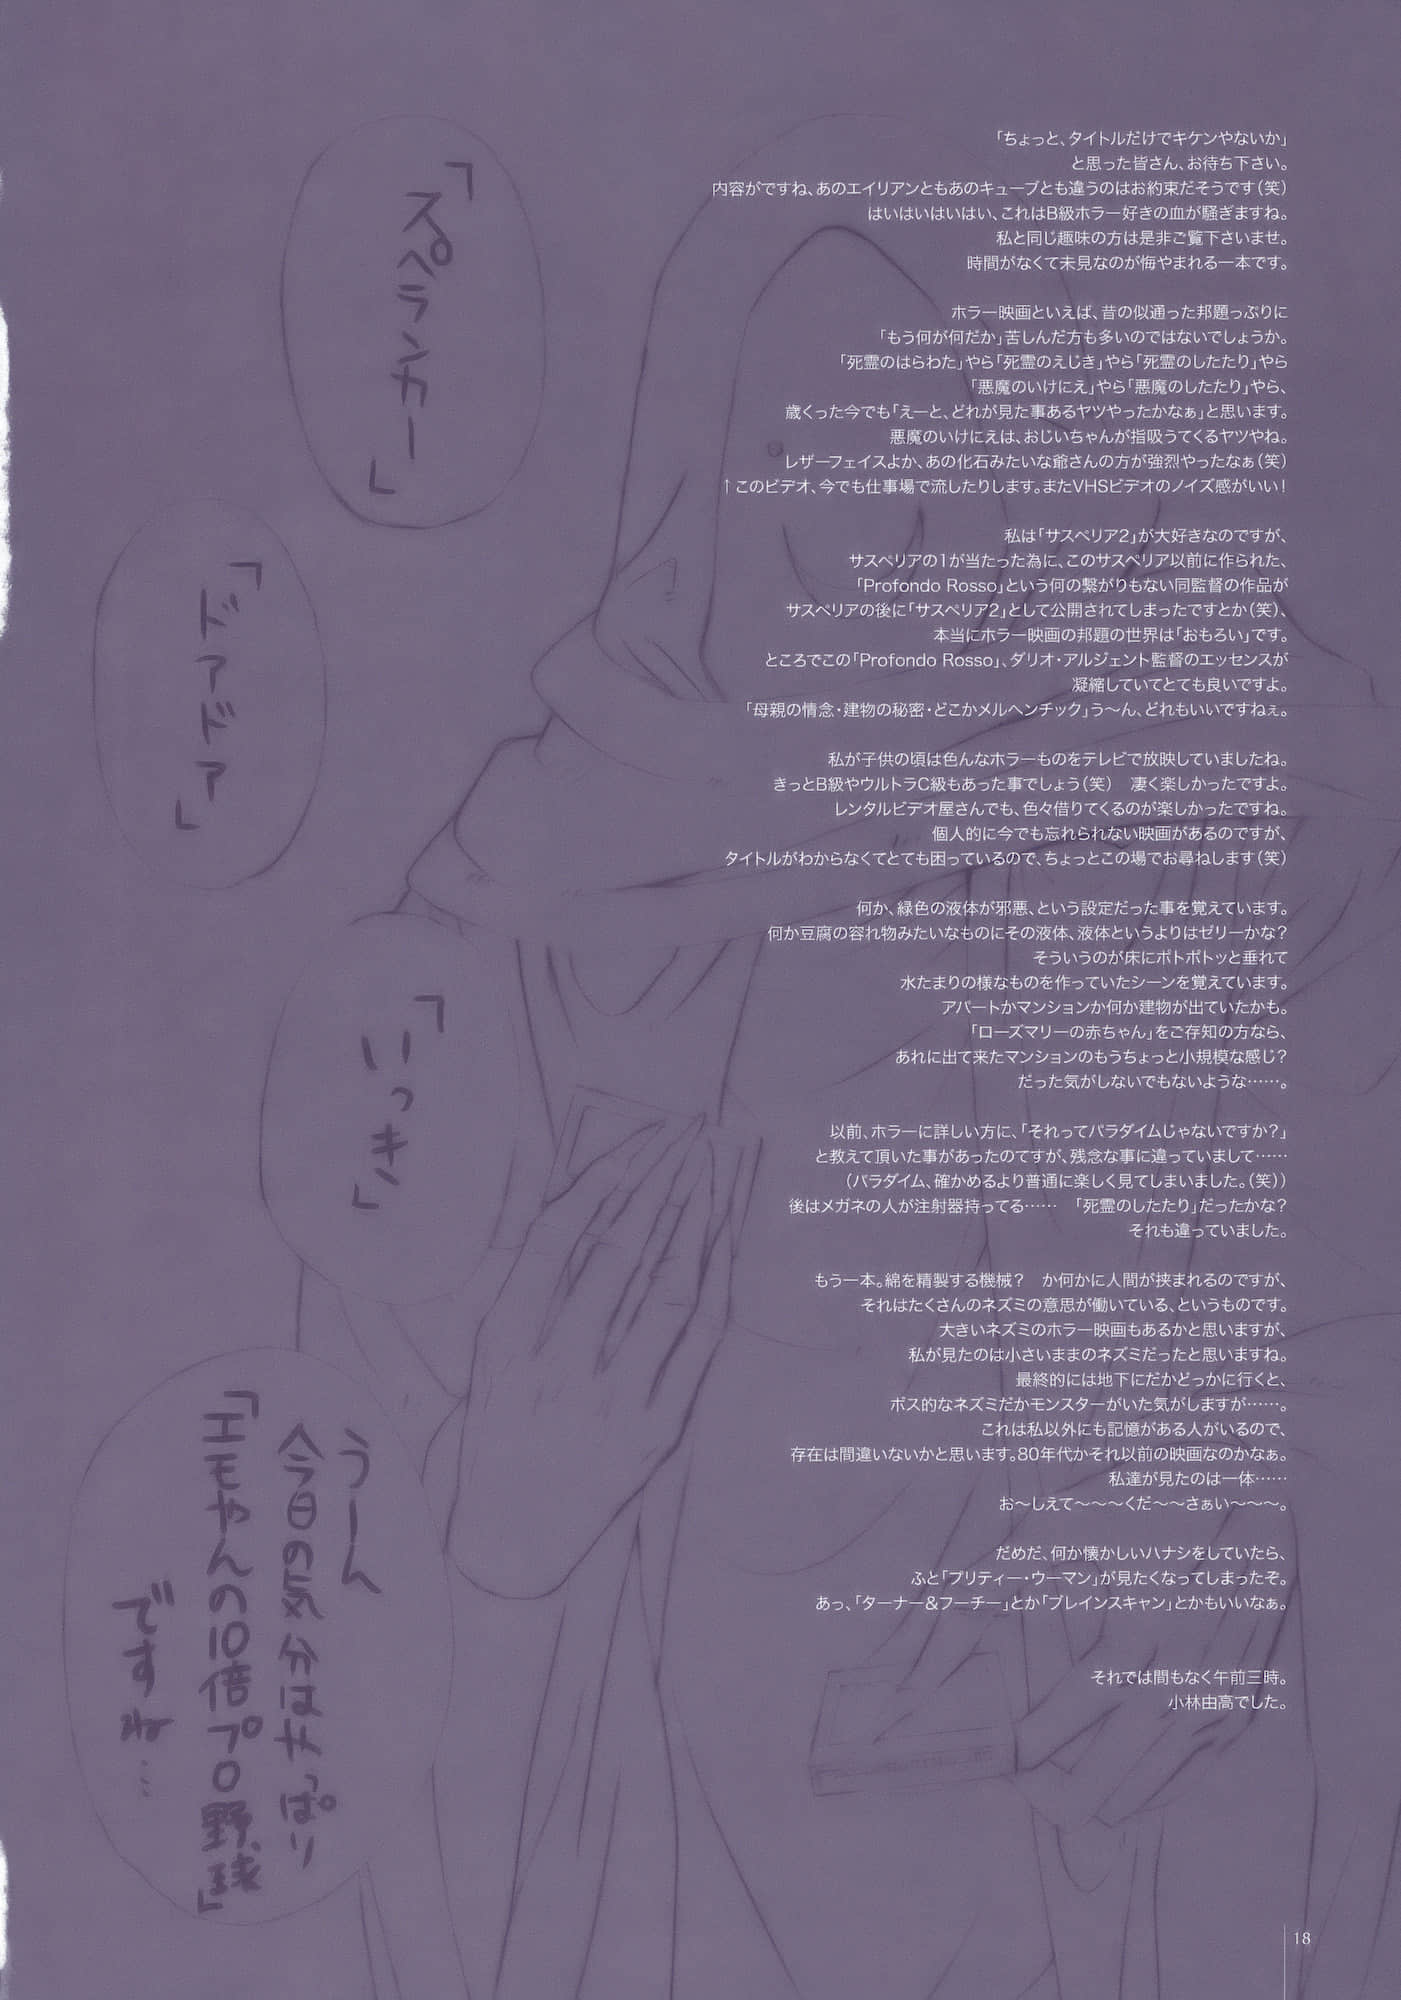 「ちょっと、タイトルだけでキケンやないか」
と思った皆さん、お待ち下さい。
内容がですね、あのエイリアンともあのキューブとも違うのはお約束だそうです（笑）
はいはいはいはい、これはB級ホラー好きの血が騒ぎますね。
私と同じ趣味の方は是非ご覧下さいませ。
時間がなくて未見なのが悔やまれる一本です。
ホラー映画といえば、昔の似通った邦題っぷりに
「もう何が何だか」苦しんだ方も多いのではないでしょうか。
「死霊のはらわた」やら「死霊のえじき」やら「死霊のしたたり」やら
「悪魔のいけにえ」やら「悪魔のしたたり」やら、
歳くった今でも「えーと、どれが見た事あるヤツやったかなぁ」と思います。
悪魔のいけにえは、おじいちゃんが指吸うてくるヤツやね。
レザーフェイスよか、あの化石みたいな爺さんの方が強烈やったなぁ（笑）
↑このビデオ、今でも仕事場で流したりします。またVHSビデオのノイズ感がいい！
私は「サスペリア2」が大好きなのですが、
サスペリアの1が当たった為に、このサスペリア以前に作られた、
「Profondo Rosso」という何の繋がりもない同監督の作品が
サスペリアの後に「サスペリア2」として公開されてしまったですとか（笑）、
本当にホラー映画の邦題の世界は「おもろい」です。
ところでこの「Profondo Rosso」、ダリオ・アルジェント監督のエッセンスが
凝縮していてとても良いですよ。
「母親の情念・建物の秘密・どこかメルヘンチック」う～ん、どれもいいですねぇ。
私が子供の頃は色んなホラーものをテレビで放映していましたね。
きっとB級やウルトラC級もあった事でしょう（笑）　凄く楽しかったですよ。
レンタルビデオ屋さんでも、色々借りてくるのが楽しかったですね。
個人的に今でも忘れられない映画があるのですが、
タイトルがわからなくてとても困っているので、ちょっとこの場でお尋ねします（笑）
何か、緑色の液体が邪悪、という設定だった事を覚えています。
何か豆腐の容れ物みたいなものにその液体、液体というよりはゼリーかな？
そういうのが床にポトポトッと垂れて
水たまりの様なものを作っていたシーンを覚えています。
アパートかマンションか何か建物が出ていたかも。
「ローズマリーの赤ちゃん」をご存知の方なら、
あれに出て来たマンションのもうちょっと小規模な感じ？
だった気がしないでもないような……。
以前、ホラーに詳しい方に、「それってパラダイムじゃないですか？」
と教えて頂いた事があったのてすが、残念な事に違っていまして……
（パラダイム、確かめるより普通に楽しく見てしまいました。（笑））
後はメガネの人が注射器持ってる……　「死霊のしたたり」だったかな？
それも違っていました。
もう一本。綿を精製する機械？　か何かに人間が挟まれるのですが、
それはたくさんのネズミの意思が働いている、というものです。
大きいネズミのホラー映画もあるかと思いますが、
私が見たのは小さいままのネズミだったと思いますね。
最終的には地下にだかどっかに行くと、
ボス的なネズミだかモンスターがいた気がしますが……。
これは私以外にも記憶がある人がいるので、
存在は間違いないかと思います。80年代かそれ以前の映画なのかなぁ。
私達が見たのは一体……
お～しえて～～～くだ～～さぁい～～～。
だめだ、何か懐かしいハナシをしていたら、
ふと「プリティー・ウーマン」が見たくなってしまったぞ。
あっ、「ターナー＆フーチー」とか「ブレインスキャン」とかもいいなぁ。
それでは間もなく午前三時。
小林由高でした。
「スペランカー」
「ドアドア」
「いっき」
うーん
今日の気分はやっぱり
「エモやんの10倍プロ野球」
ですね…
18